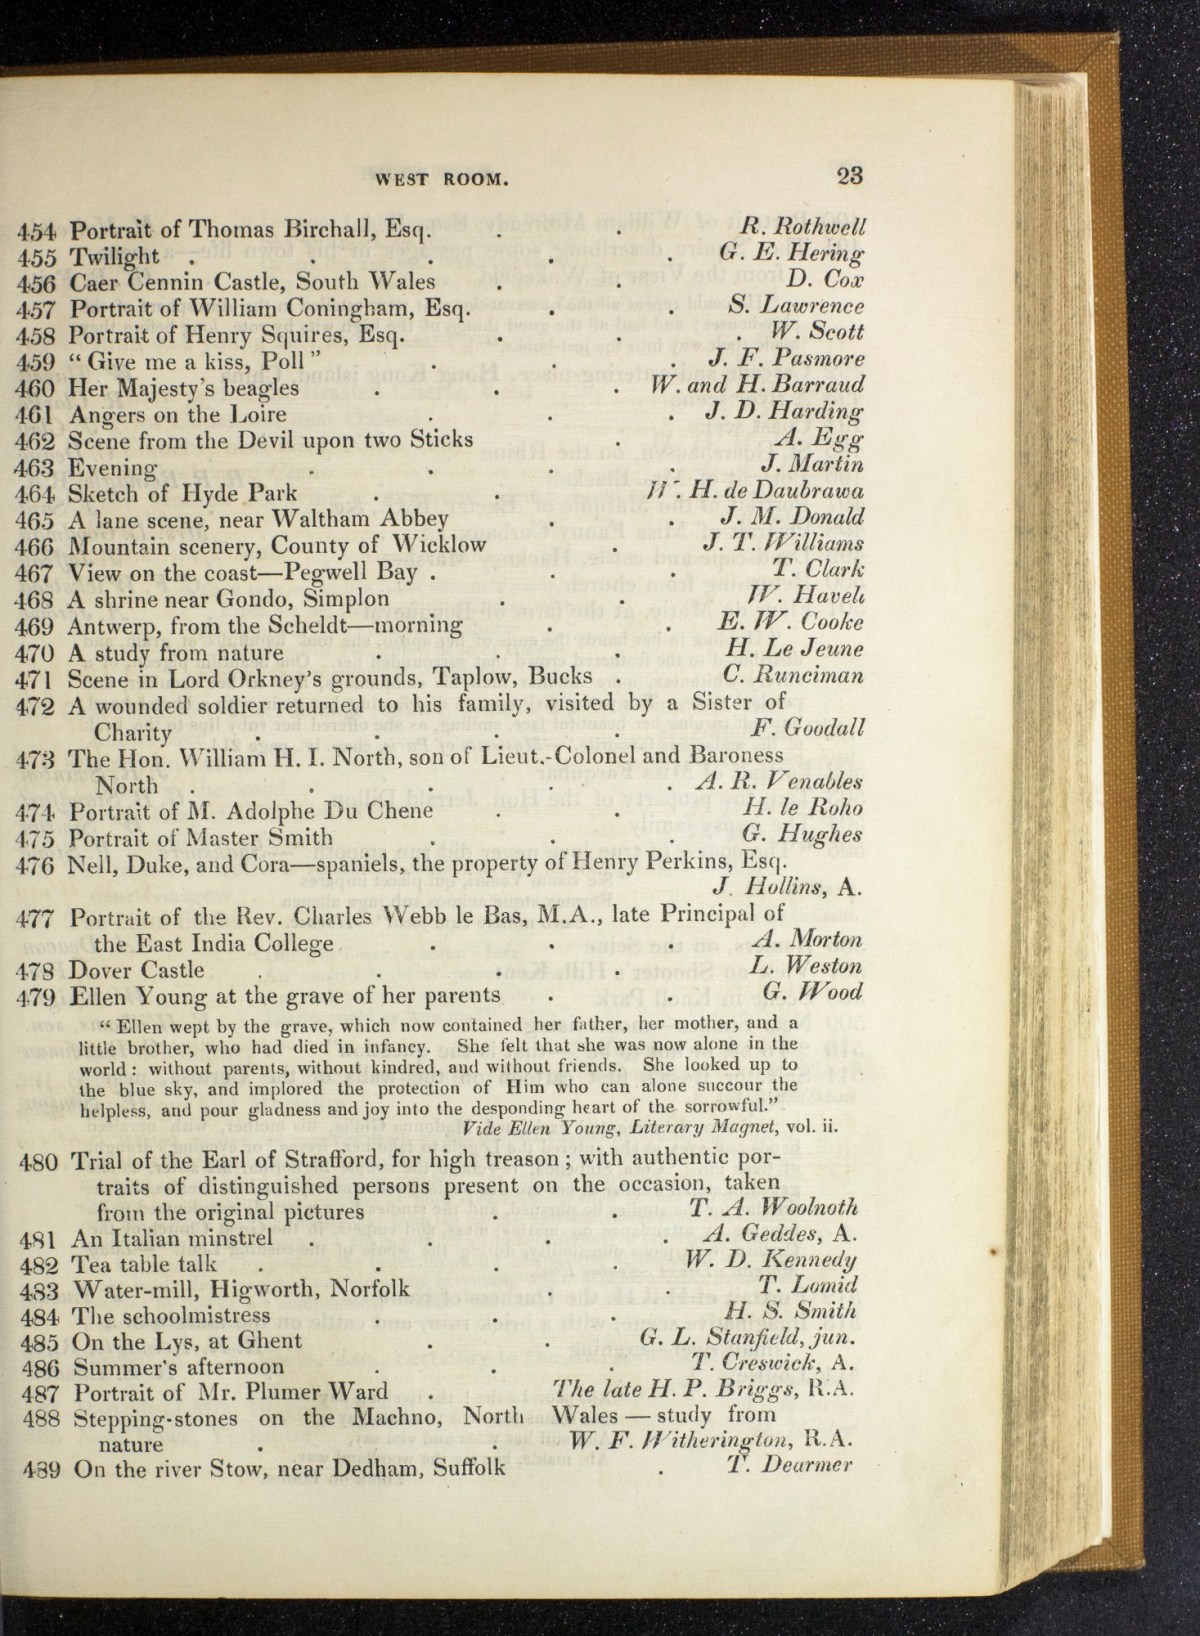 WEST ROOM. 23
454 Portrait of Thomas Birchall, Esq. . . R. Rothwell
455 Twilight . . . . . G. E. Hering
456 Caer Cennin Castle, South Wales . . D. Cox
457 Portrait of William Coningham, Esq. . . S. Lawrence
458 Portrait of Henry Squires, Esq. . . . W. Scott
459 “ Give me a kiss, Poll ” . . . J. F. Pasmore
460 Her Majesty's beagles . . . W. and H. Barraud
461 Angers on the Loire . . . J. D. Harding
462 Scene from the Devil upon two Sticks . A. Egg
463 Evening . . . . J. Martin
464 Sketch of Hyde Park . . W. H. de Daubrawa
465 A lane scene, near Waltham Abbey . . J. M. Donald
466 Mountain scenery, County of Wicklow . J. T. Williams
467 View on the coast—Pegwell Bay . . . T. Clark
468 A shrine near Gondo, Simplon . . W. Havell
469 Antwerp, from the Scheldt—morning . . E. W. Cooke
470 A study from nature . . . H. Le Jeune
471 Scene in Lord Orkney's grounds, Taplow, Bucks . C. Runciman
472 A wounded soldier returned to his family, visited by a Sister of
Charity . . . . F. Goodall
473 The Hon. William H. I. North, son of Lieut.-Colonel and Baroness
North . . . . . A. R. Venables
474 Portrait of M. Adolphe Du Chene . . H. le Roho
475 Portrait of Master Smith . . . G. Hughes
476 Nell, Duke, and Cora—spaniels, the property of Henry Perkins, Esq.
J. Hollins, A.
477 Portrait of the Rev. Charles Webb le Bas, M.A., late Principal of
the East India College . . . A. Morton
478 Dover Castle . . . . L. Weston
479 Ellen Young at the grave of her parents . . G. Wood
“ Ellen wept by the grave, which now contained her father, her mother, and a
little brother, who had died in infancy. She felt that she was now alone in the
world : without parents, without kindred, and without friends. She looked up to
the blue sky, and implored the protection of Him who can alone succour the
helpless, and pour gladness and joy into the desponding heart of the sorrowful.”
Vide Ellen Young, Literary Magnet, vol. ii.
480 Trial of the Earl of Strafford, for high treason ; with authentic por-
traits of distinguished persons present on the occasion, taken
from the original pictures . . T. A. Woolnoth
481 An Italian minstrel . . . . A. Geddes, A.
482 Tea table talk . . . . W. D. Kennedy
483 Water-mill, Higworth, Norfolk . . T. Lomid
484 The schoolmistress . . . H. S. Smith
485 On the Lys, at Ghent . . G. L. Stanfield, jun.
486 Summer's afternoon . . . T. Creswick, A.
487 Portrait of Mr. Plumer Ward . The late H. P. Briggs, R.A.
488 Stepping-stones on the Machno, North Wales — study from
nature . . W. F. Witherington, R.A.
489 On the river Stow, near Dedham, Suffolk . T. Dearmer